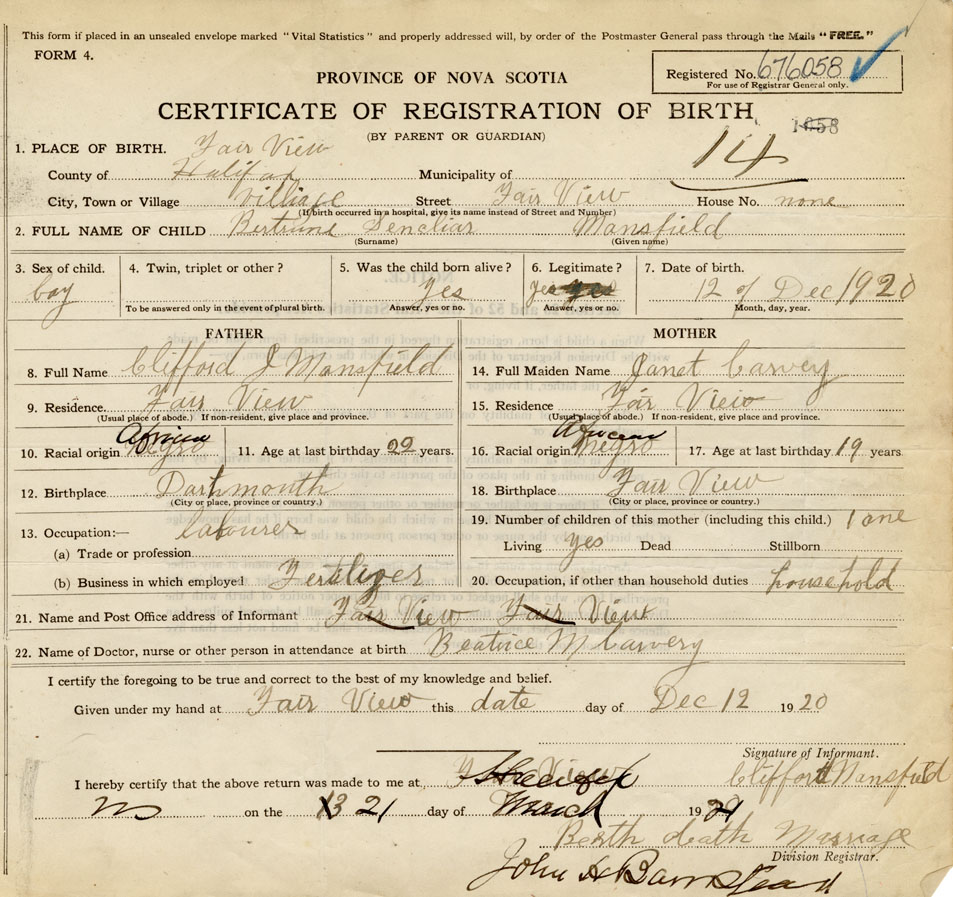 This form if placed in an unsealed envelope marked "Vital Statistics" and properly addressed will, by order of the Postmaster General pass through the Mails "FREE."
FORM 4.
Registered No. 676058
For use of Registrar General only.
PROVINCE OF NOVA SCOTIA
CERTIFICATE OF REGISTRATION OF BIRTH
1658
(BY PARENT OR GUARDIAN)
14
1. PLACE OF BIRTH. Fair View
County of Halifax Municipality of
City, Town or Village Villiage Street Fair View House No. none
(If birth occurred in a hospital, give its name instead of Street and Number)
2. FULL NAME OF CHILD Bertrund Sencliar Mansfield
(Surname) (Given name)
3. Sex of child. 4. Twin, triplet or other? 5. Was the child born alive? 6. Legitimate? 7. Date of birth.
boy yes yes yes 12 of Dec 1920
To be answered only in the event of plural birth. Answer, yes or no. Answer, yes or no. Month, day, year.
FATHER
8. Full Name Clifford J Mansfield
9. Residence. Fair View
(Usual place of abode.) If non-resident, give place and province.
African
10. Racial origin Negro 11. Age at last birthday 22 years.
12. Birthplace Darthmouth
(City or place, province or country.)
13. Occupation:— labourer
(a) Trade or profession
(b) Business in which employed Fertilizer
MOTHER
14. Full Maiden Name Janet Carvey
15. Residence Fair View
(Usual place of abode.) If non-resident, give place and province.
African
16. Racial origin Negro 17. Age at last birthday 19 years
18. Birthplace Fair View
(City or place, province or country.)
19. Number of children of this mother (including this child.) 1 one
Living yes Dead Stillborn
20. Occupation, if other than household duties household
21. Name and Post Office address of Informant Fair View Fair View
22. Name of Doctor, nurse or other person in attendance at birth Beatrice M Carvery
I certify the foregoing to be true and correct to the best of my knowledge and belief.
Given under my hand at Fair View this date day of Dec 12 1920
Signature of Informant.
Clifford Mansfield
I hereby certify that the above return was made to me at Halifax
on the 21 day of March 1924
Berth death Marriage
Division Registrar.
John A Barnstead